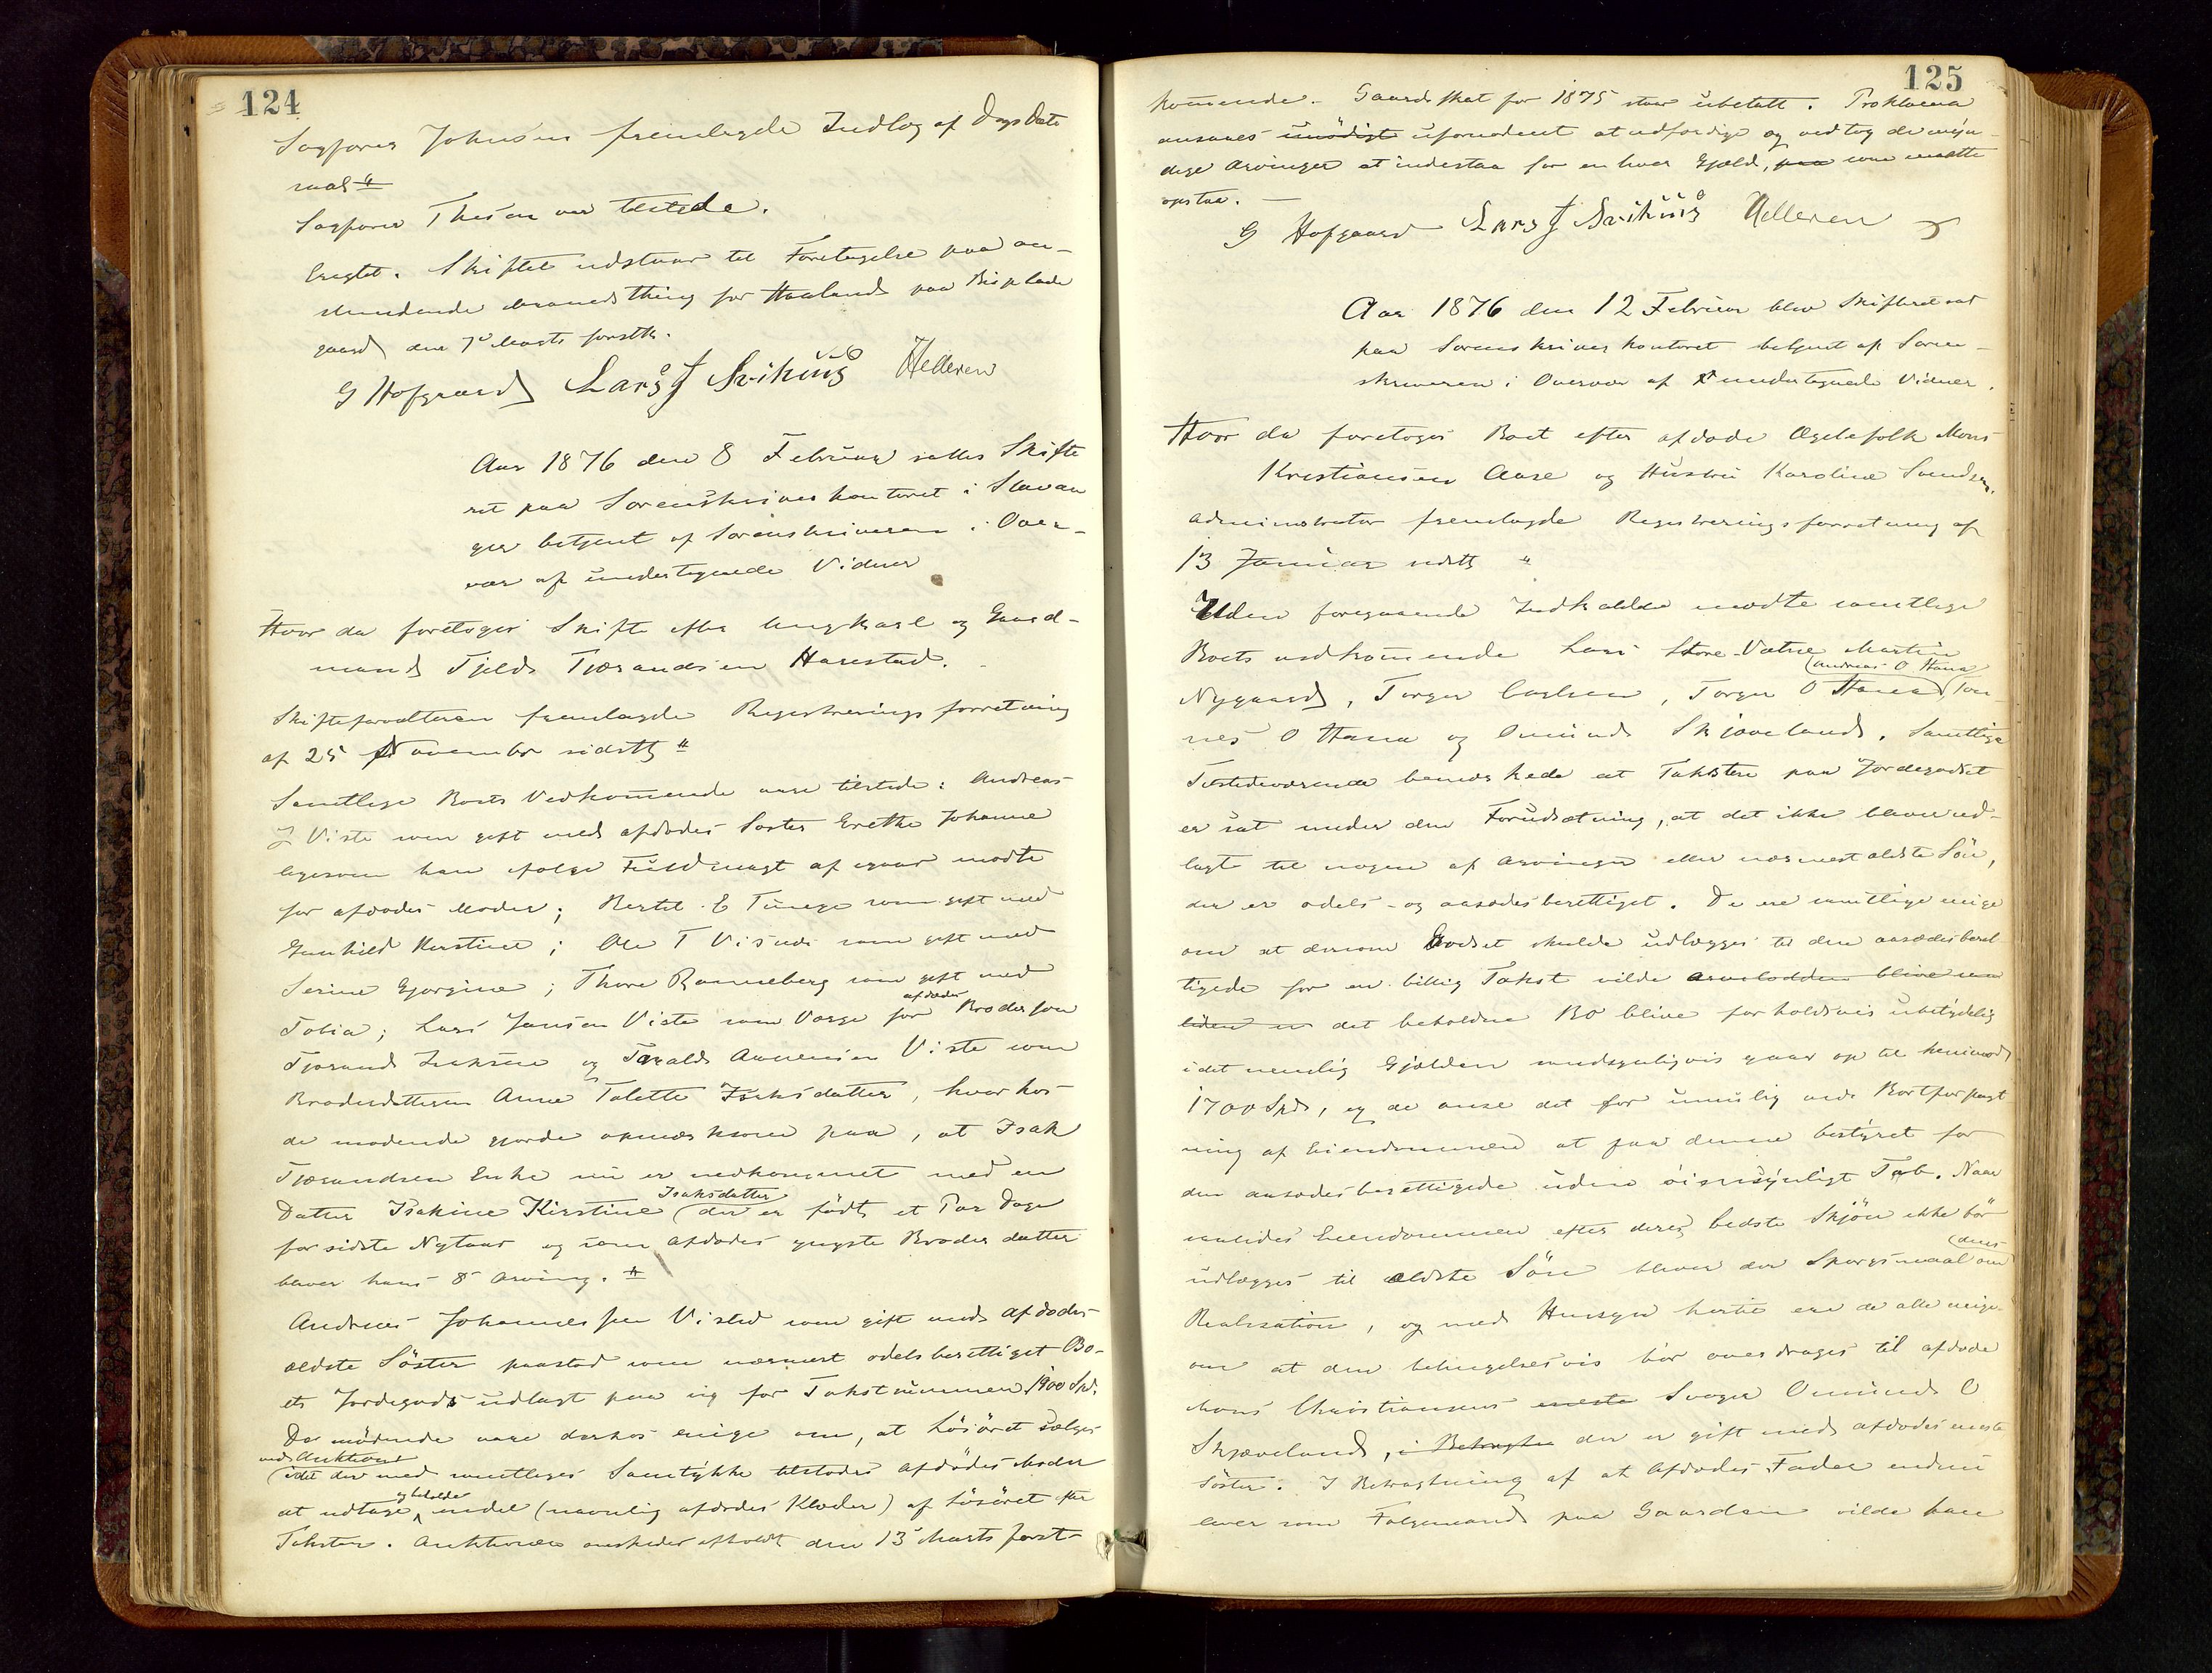 124
Sagfører Johnsen fremlagde Indlæg af Dags Dato
saal "
Sagfører Thesen var tilstede.
Eragtet. Skiftet udstaar til Foretagelse paa an-
stundende thing for Haaland paa Risplads
gaard den 7de Marts førstk.
G Hofgaard Lars J Svihuus Helleren
Aar 1876 den 8 Februar sattes Skifte
ret paa Sorenskriverkontoret i Stavan
ger betjent af Sorenskriveren i Over-
vær af undertegnede Vidner
Hvor da foretoges Skifte efter Ungkarl og Gaard-
mand Tjelds Tjørandsen Harestad.
Skifteforvalteren fremlagde Registreringsforretning
af 25 November sidstl "
Samtlige Boets Vedkommende vare tilstede: Andreas
J Viste som gift med afdødes Søster Grethe Johanne
ligesom han ifølge Fuldmagt af igaar mødte
for afdødes Moder; Bertil E Tunge som gift med
Gunhild Kirstine; Ole T Visnes som gift med
Serine Gjorgine; Thore Ranneberg som gift med
afdødes
Tobia; Lars Jansen Viste som Værge for Brodersøn
Tjørand Isaksen og Tarald Viste som
Broderdatteren Anne Talette Isaksdatter, hvorhos
de mødende gjorde opmærksom paa, at Isak
Tjørandsen Enke nu er nedkommet med en
Isaksdatter
Datter Isakine Kirstine (der er født et Par Dage
før sidste Nytaar og som afdødes yngste Broderdatter
bliver hans 8de Arving. "
Andreas Johannessen Visted som gift med afdødes
ældste Søster paastod som nærmest odelsberettiget Bo-
ets Jordegods udlagt paa sig for Takstsummen 1900 Spd.
De mødende vare derhos enige om, at Løsøret sælges
ved Auktion
(idet der med samtliges Samtykke tilstodes afdødes Moder
og beholde
at udtage endel (navnlig afdødes Klæder) af Løsøret efter
Taksten. Auktionen ønskedes afholdt den 13de Marts først-
125
kommende. Gaardskat for 1875 staar ubetalt. Proklama
ansaaes unødigt ufornødent at udfærdige og vedtog de myn-
dige Arvinger at indestaa for enhver Gjæld, paa som maatte
opstaa.
G Hofgaard Lars J Svihuus Helleren
Aar 1876 den 12 Februar blev Skifteret sat
paa Sorenskriverkontoret betjent af Soren-
skriveren i Overvær af undertegnede Vidner.
Hvor da foretoges Boet efter afdøde Ægtefolk Mons
Kristiansen Aase og Hustru Karoline Samdsm.
Administrator fremlagde Registreringsforretning af
13 Januar sidstl "
Uden foregaaende Indkaldelse mødte samtlige
Boets vedkommende Lars Store-Vatne Martin
(Andreas O Hana
Nygaard, Torger Carlsen, Torger O Hana (Tøn
nes O Hana og Omund Skjæveland. Samtlige
Tilstedeværende bemærkede at Taksten paa Jordegodset
er sat under den Forudsætning, at det ikke bliver ud-
lagt til nogen af Arvinger eller nærmest ældste Søn,
der er odels- og aasædesberettiget. De ere samtlige enige
om at dersom Godset skulde udlægges til den aasædesberet
tigede for en billig Takst vilde arvelodden blive saa
liden at det beholdne Bo blive forholdsvis ubetydelig
idet nemlig Gjælden rimeligvis gaar op til henimod
1700 Spd, og de anse det for umulig ved Bortforpagt
ning af Eiendommen at faa denne bestyret for
den aasædesberettigede uden øiensynligt Tab. Naar
saaledes Eiendommen efter deres bedste Skjøn ikke bør
(dens
udlægges til ældste Søn bliver der Spørgsmaal om
Realisation, og med Hensyn hertil ere de alle enige
om at den betingelsesvis bør overdrages til afdøde
Mons Christiansens eneste Svoger Omund O
Skjæveland, i Betragtn der er gift med afdødes eneste
Søster. I Betragtning af at Afdødes Fader endnu
lever som Folgemand paa Gaarden vilde han